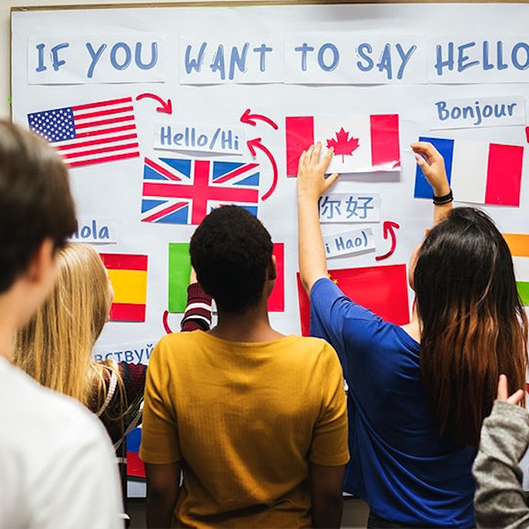 IF YOU WANT TO SAY HELLO
Bonjour
Hello/Hi
你好
i Hao)
Hola
вствуй